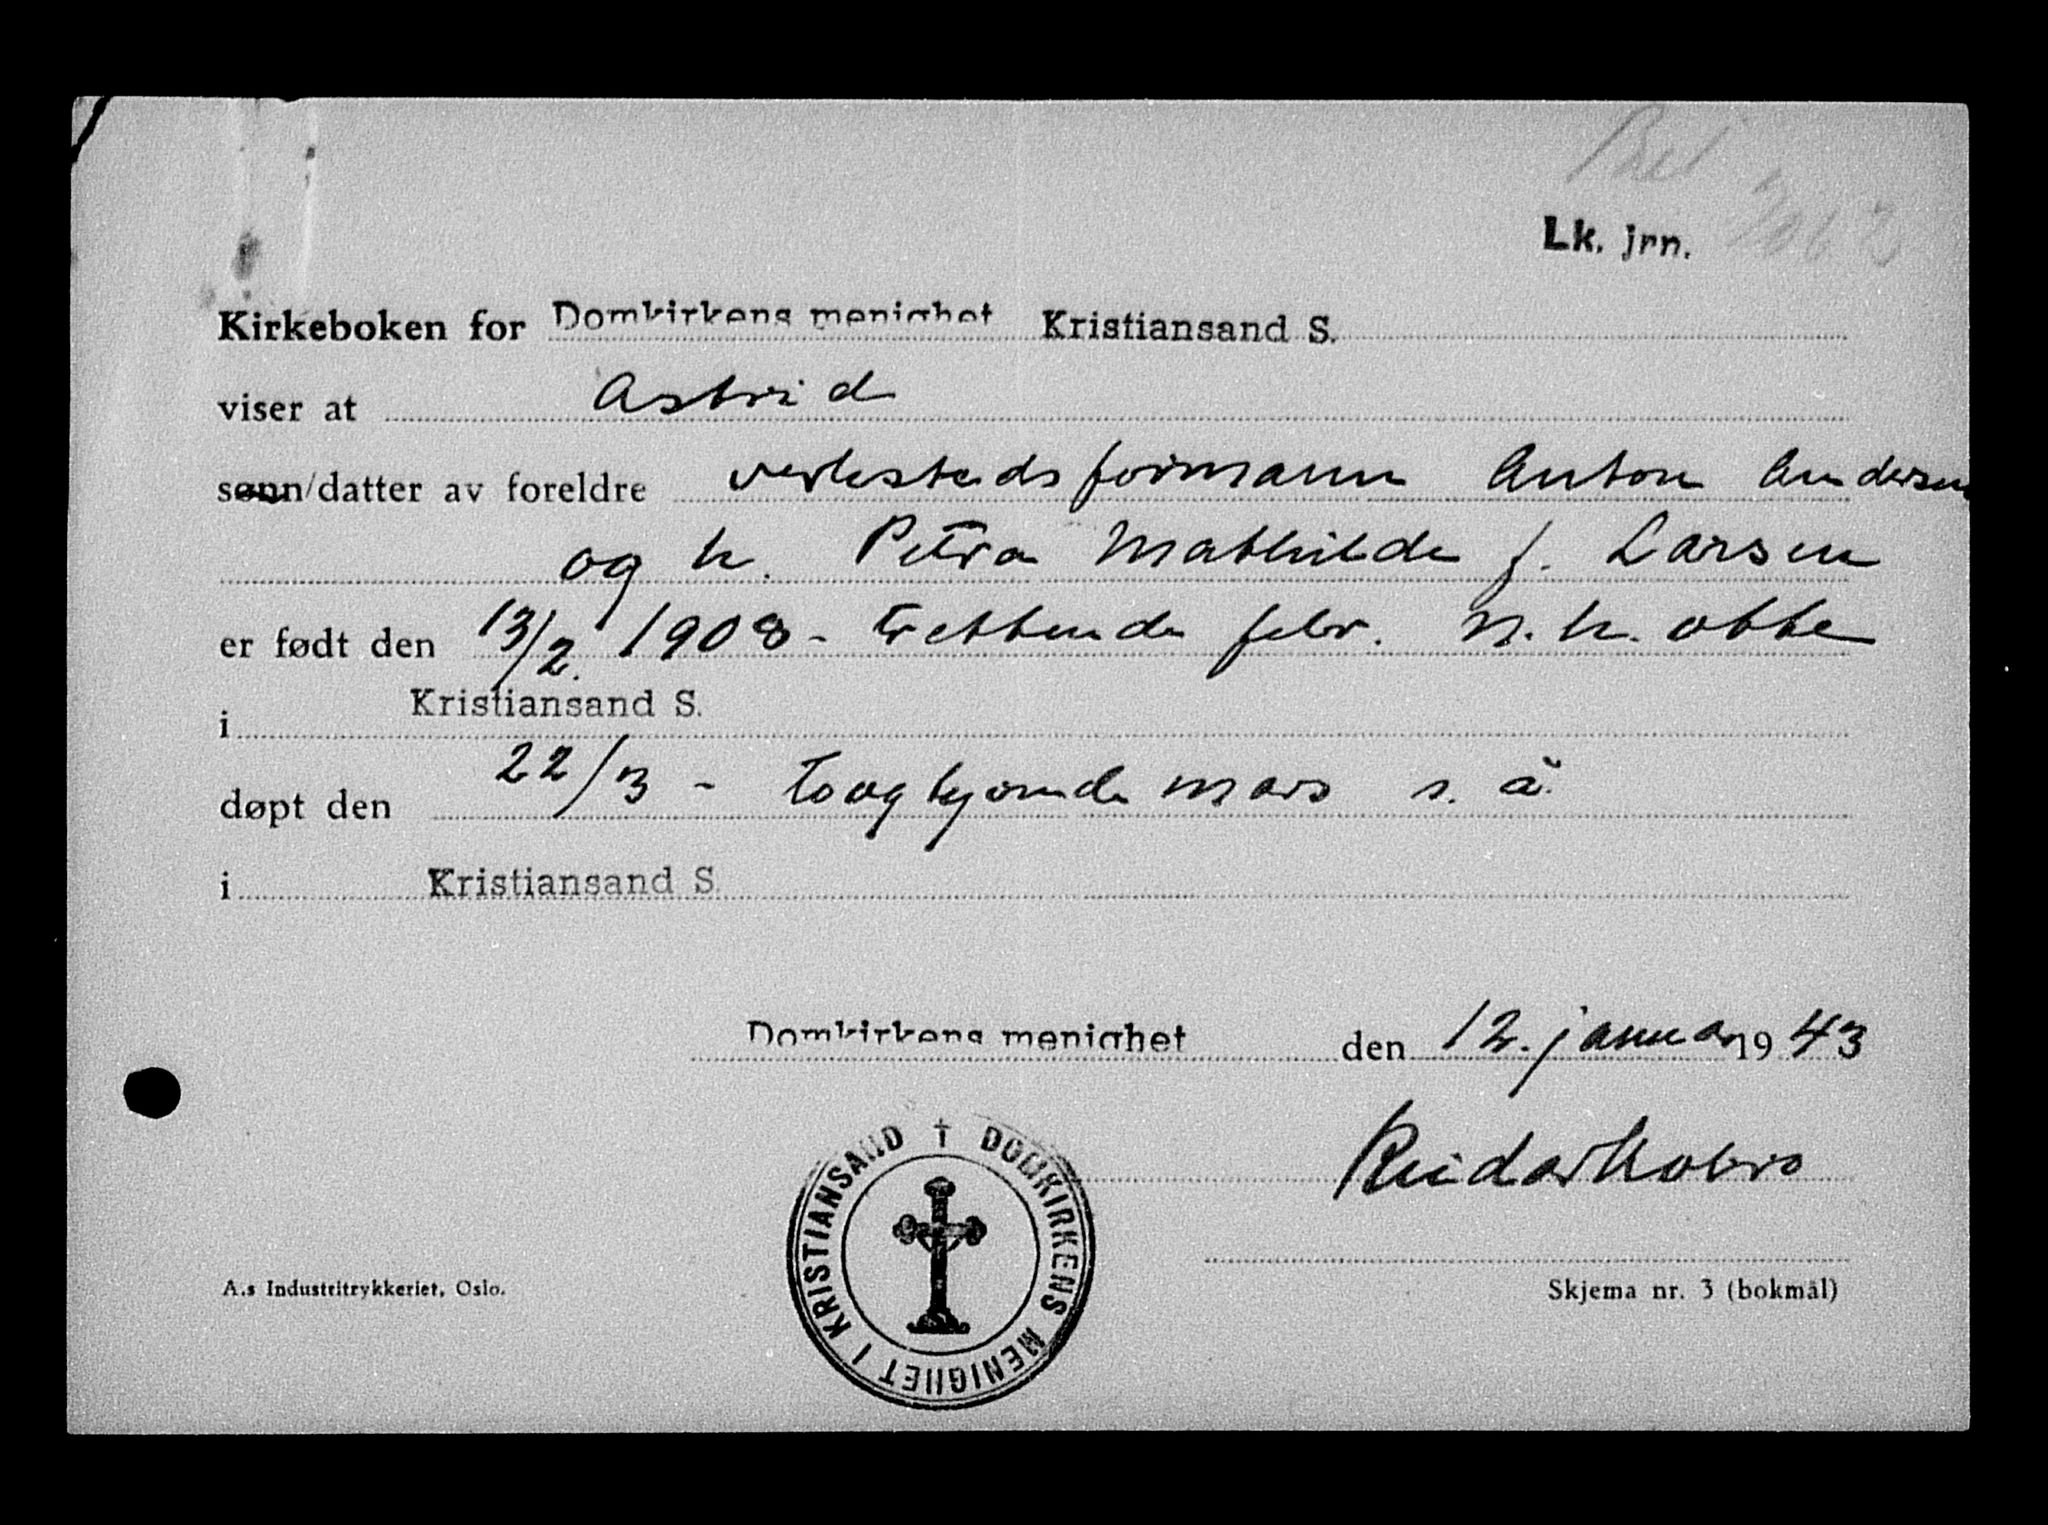 Lk. jrn. 7062
Kirkeboken for Domkirkens menighet Kristiansand S.
viser at Astrid
sønn/datter av foreldre verkstedsformann Anton Andersen
og h. Petra Mathilde f. Larsen
er født den 13/2. 1908 - Trettende febr. n. h. otte
i Kristiansand S.
døpt den 22/3 - toogtyvende mars s. å.
i Kristiansand S.
Domkirkens menighet den 12. januar 1943
Reidar Kobro
DOMKIRKENS MENIGHET I KRISTIANSAND †
A.s Industritrykkeriet, Oslo.
Skjema nr. 3 (bokmål)